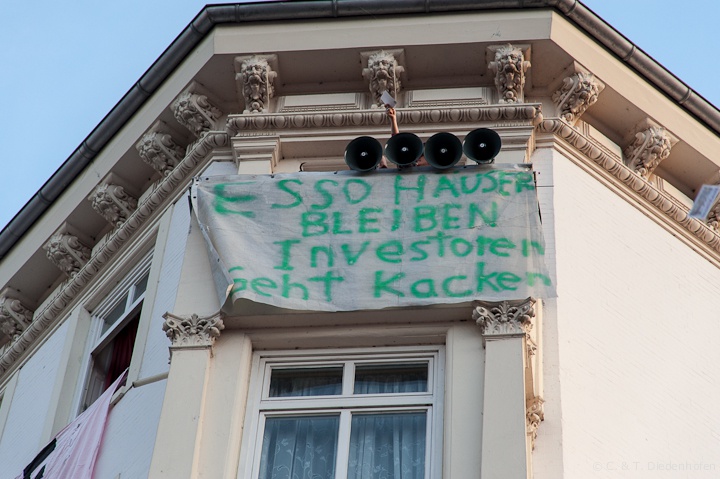 ESSO HÄUSER
BLEIBEN
Investoren
Geht Kacken
© C. & T. Diedenhofen